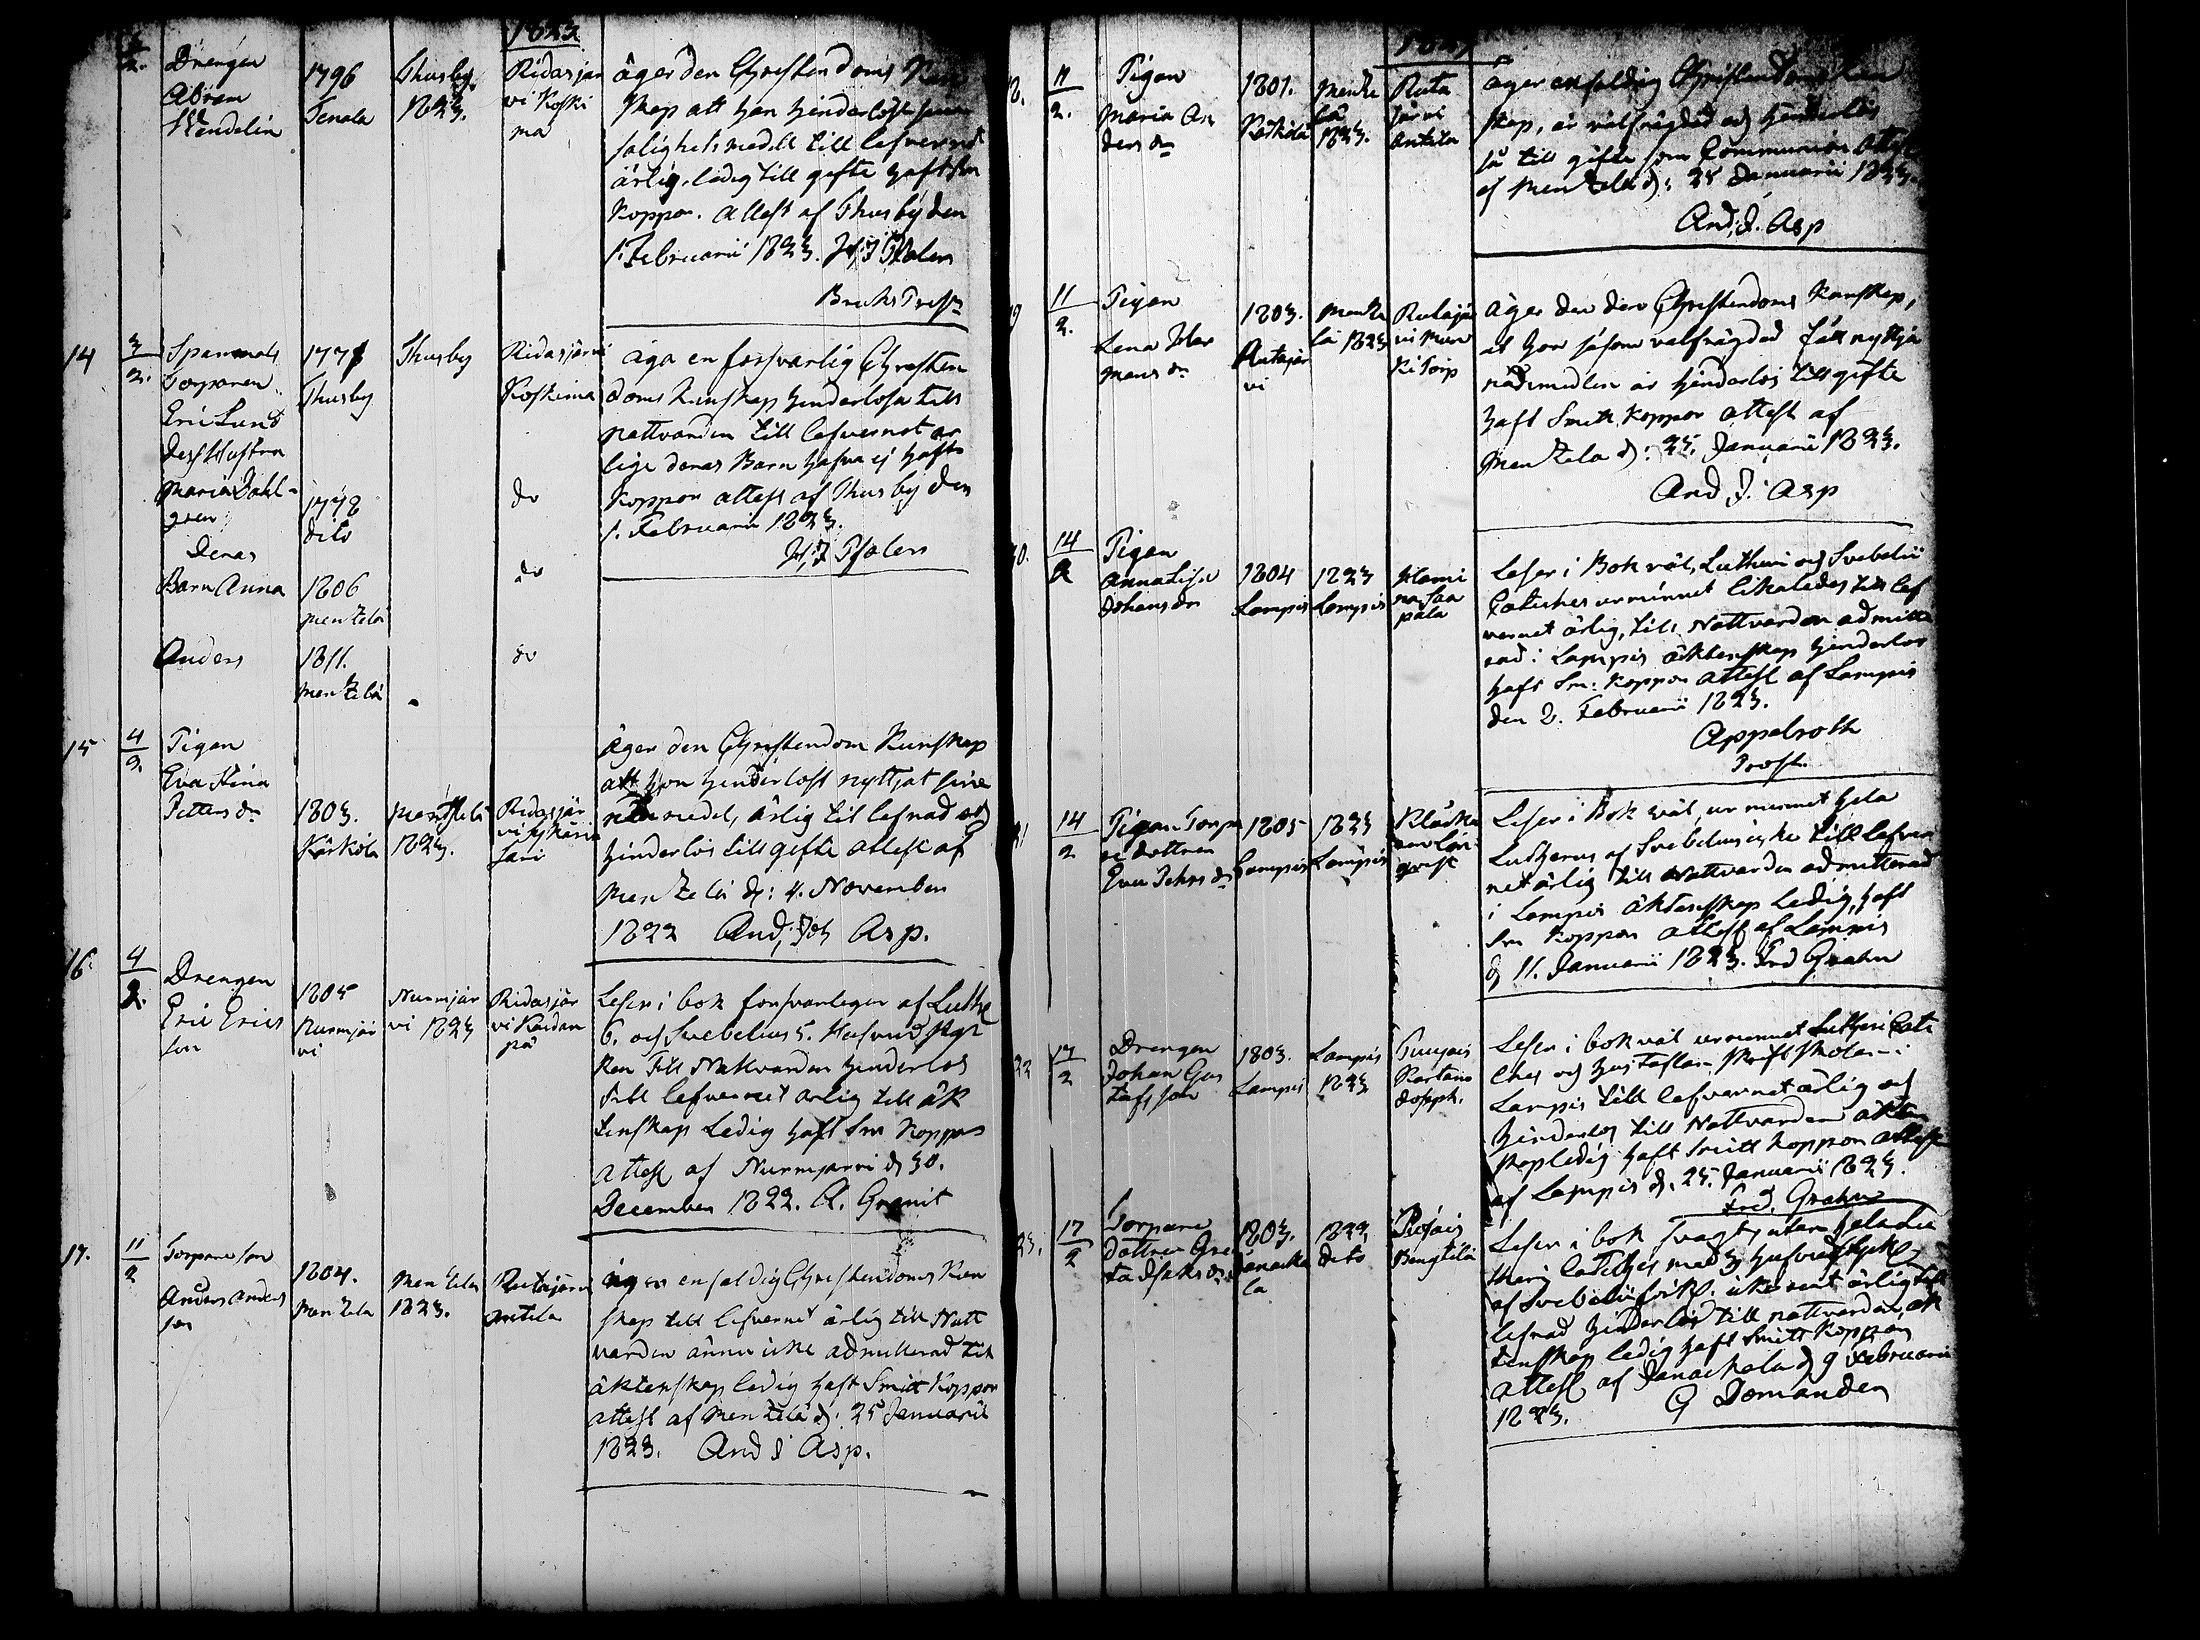 1823
2.
Drengen
Abram
Wendelin
1796
Tenala
Thusby
1823.
Ridasjär
vi Koski
ma
äger den Christendoms Kun
skap att han hinderlöst sina
salighets medell till lefvernet
ärlig, ledig till gifte haft sm
Koppor. Attest af Thusby den
1. Februarii 1823. H, J Tholen
Bruks Pred:
14
3
2.
Spanmåls
Torparen
Eric Lund
Dess Hustru
Maria Dahl-
gren
Deras
Barn Anna
Anders
1771
Thusby
1778
dito
1806
Mentzelä
1811.
Mentzelä
Thusby
Ridasjärvi
Koskima
do
do
do
äga en försvarlig Christen
doms kunskap hinderlösa till
nattvarden till lefvernet är
lige deras Barn hafva ej haft
Koppor attest af Thusby den
1. Februarii 1823.
H, J Tholen
15
4
2.
Pigan
Eva Stina
Petters dr
1803.
Kärkölä
Mentzelä
1823.
Ridasjär
vi
sari
äger den Christendom Kunskap
att hon hinderlöst nyttjat sine
nådemedel, ärlig til lefnad och
hinderlös till gifte attest af
Mentzelä d: 4. November
1822 And, Joh Asp.
16.
4
2.
Drengen
Eric Erics
son
1805
Nurmjär
vi
Nurmjär
vi 1823
Ridasjär
vi
på
Läser i bok försvarligen af Luthe
6. och Svebelius 5. Hufvud styc
ken Till Nattvarden hinderlös
till lefvernet ärlig till äk
tenskap Ledig haft Sm Koppor
attest af Nurmjärvi d 30.
December 1822. A. Granit
17.
11
2
Torpare son
Anders Anders
son
1804.
Mentzela
Mentzela
1823.
Rutajärvi
Antila
äger enfaldig Christendoms Kun
skap till lefvernet ärlig till Natt
varden ännu icke admitterad till
äktenskap ledig haft Smitt Koppor
attest af Mentzelä d: 25 Januarii
1823. And J Asp.
18.
11
2.
Pigan
Maria An
ders dr
1801.
Mentze
lä
1823.
Ruta
järvi
Antila
äger enfaldig Christendoms kun
skap, är välfrägdad och hinderlös
så till gifte som Communion Attest
af Mentzelä d: 25 Januarii 1823.
And, J. Asp
19
11
2.
Pigan
Lena Her
mans dr
1803.
Rutajär
vi
Mentze
lä 1823
Rutajär
vi
Torp
äger den den Christendoms Kunskap,
at hon såsom välfrägdad fått nyttja
nådemedlen är hinderlös till gifte
haft Smitt Koppor attest af
Mentzela d: 25. Januarii 1823.
And J. Asp
20.
14
2
Pigan
Anna Lisa
Johans dr
1804
Lampis
1823
Lampis
Läser i Bok väl, Lutheri och Svebelii
Cateches ur minnet likaledes till lef
vernet ärlig, till Nattvarden admitte
rad i Lampis äktenskap hinderlös
haft Sm: Koppor attest af Lampis
den 2. Februarii 1823.
Appelroth
Prost
21
14
2
Pigan Torpa
re dottren
Eva Johs dr
1805
Lampis
1823
Lampis
Läser i Bok väl, ur minnet hela
Lutherus af Svebelius icke till lefver
net ärlig till Nattvarden admitterad
i Lampis äktenskap Ledig, haft
Sm Koppor attest af Lampis
d 11. Januarii 1823. Frd Grahn
22
17
2
Drengen
Johan Gus
tafs son
1803.
Lampis
Lampis
1823
Kartano
Läser i bok väl ur minnet Lutheri Cate
ches och hus taflan skrift skolan i
Lampis till lefvernet ärlig och
hinderlös till Nattvarden äkten
skap ledig haft Smitt Koppor attest
af Lampis d. 25. Januarii 1823.
Frd. Grahn
23.
17
2
Torpare
Dottren Gre
ta Isaks dr
1803.
Janacka
la
1823
dito
Bengtilä
Läser i bok svagt, utan hela Lu
theri Catches med 3 hufvud stycke
af Svebelii
lefnad hinderlös till nattvarden, äk
tenskap ledig haft Smitt Koppor
attest af Janackala d 9 Februarii
1823. G Domander